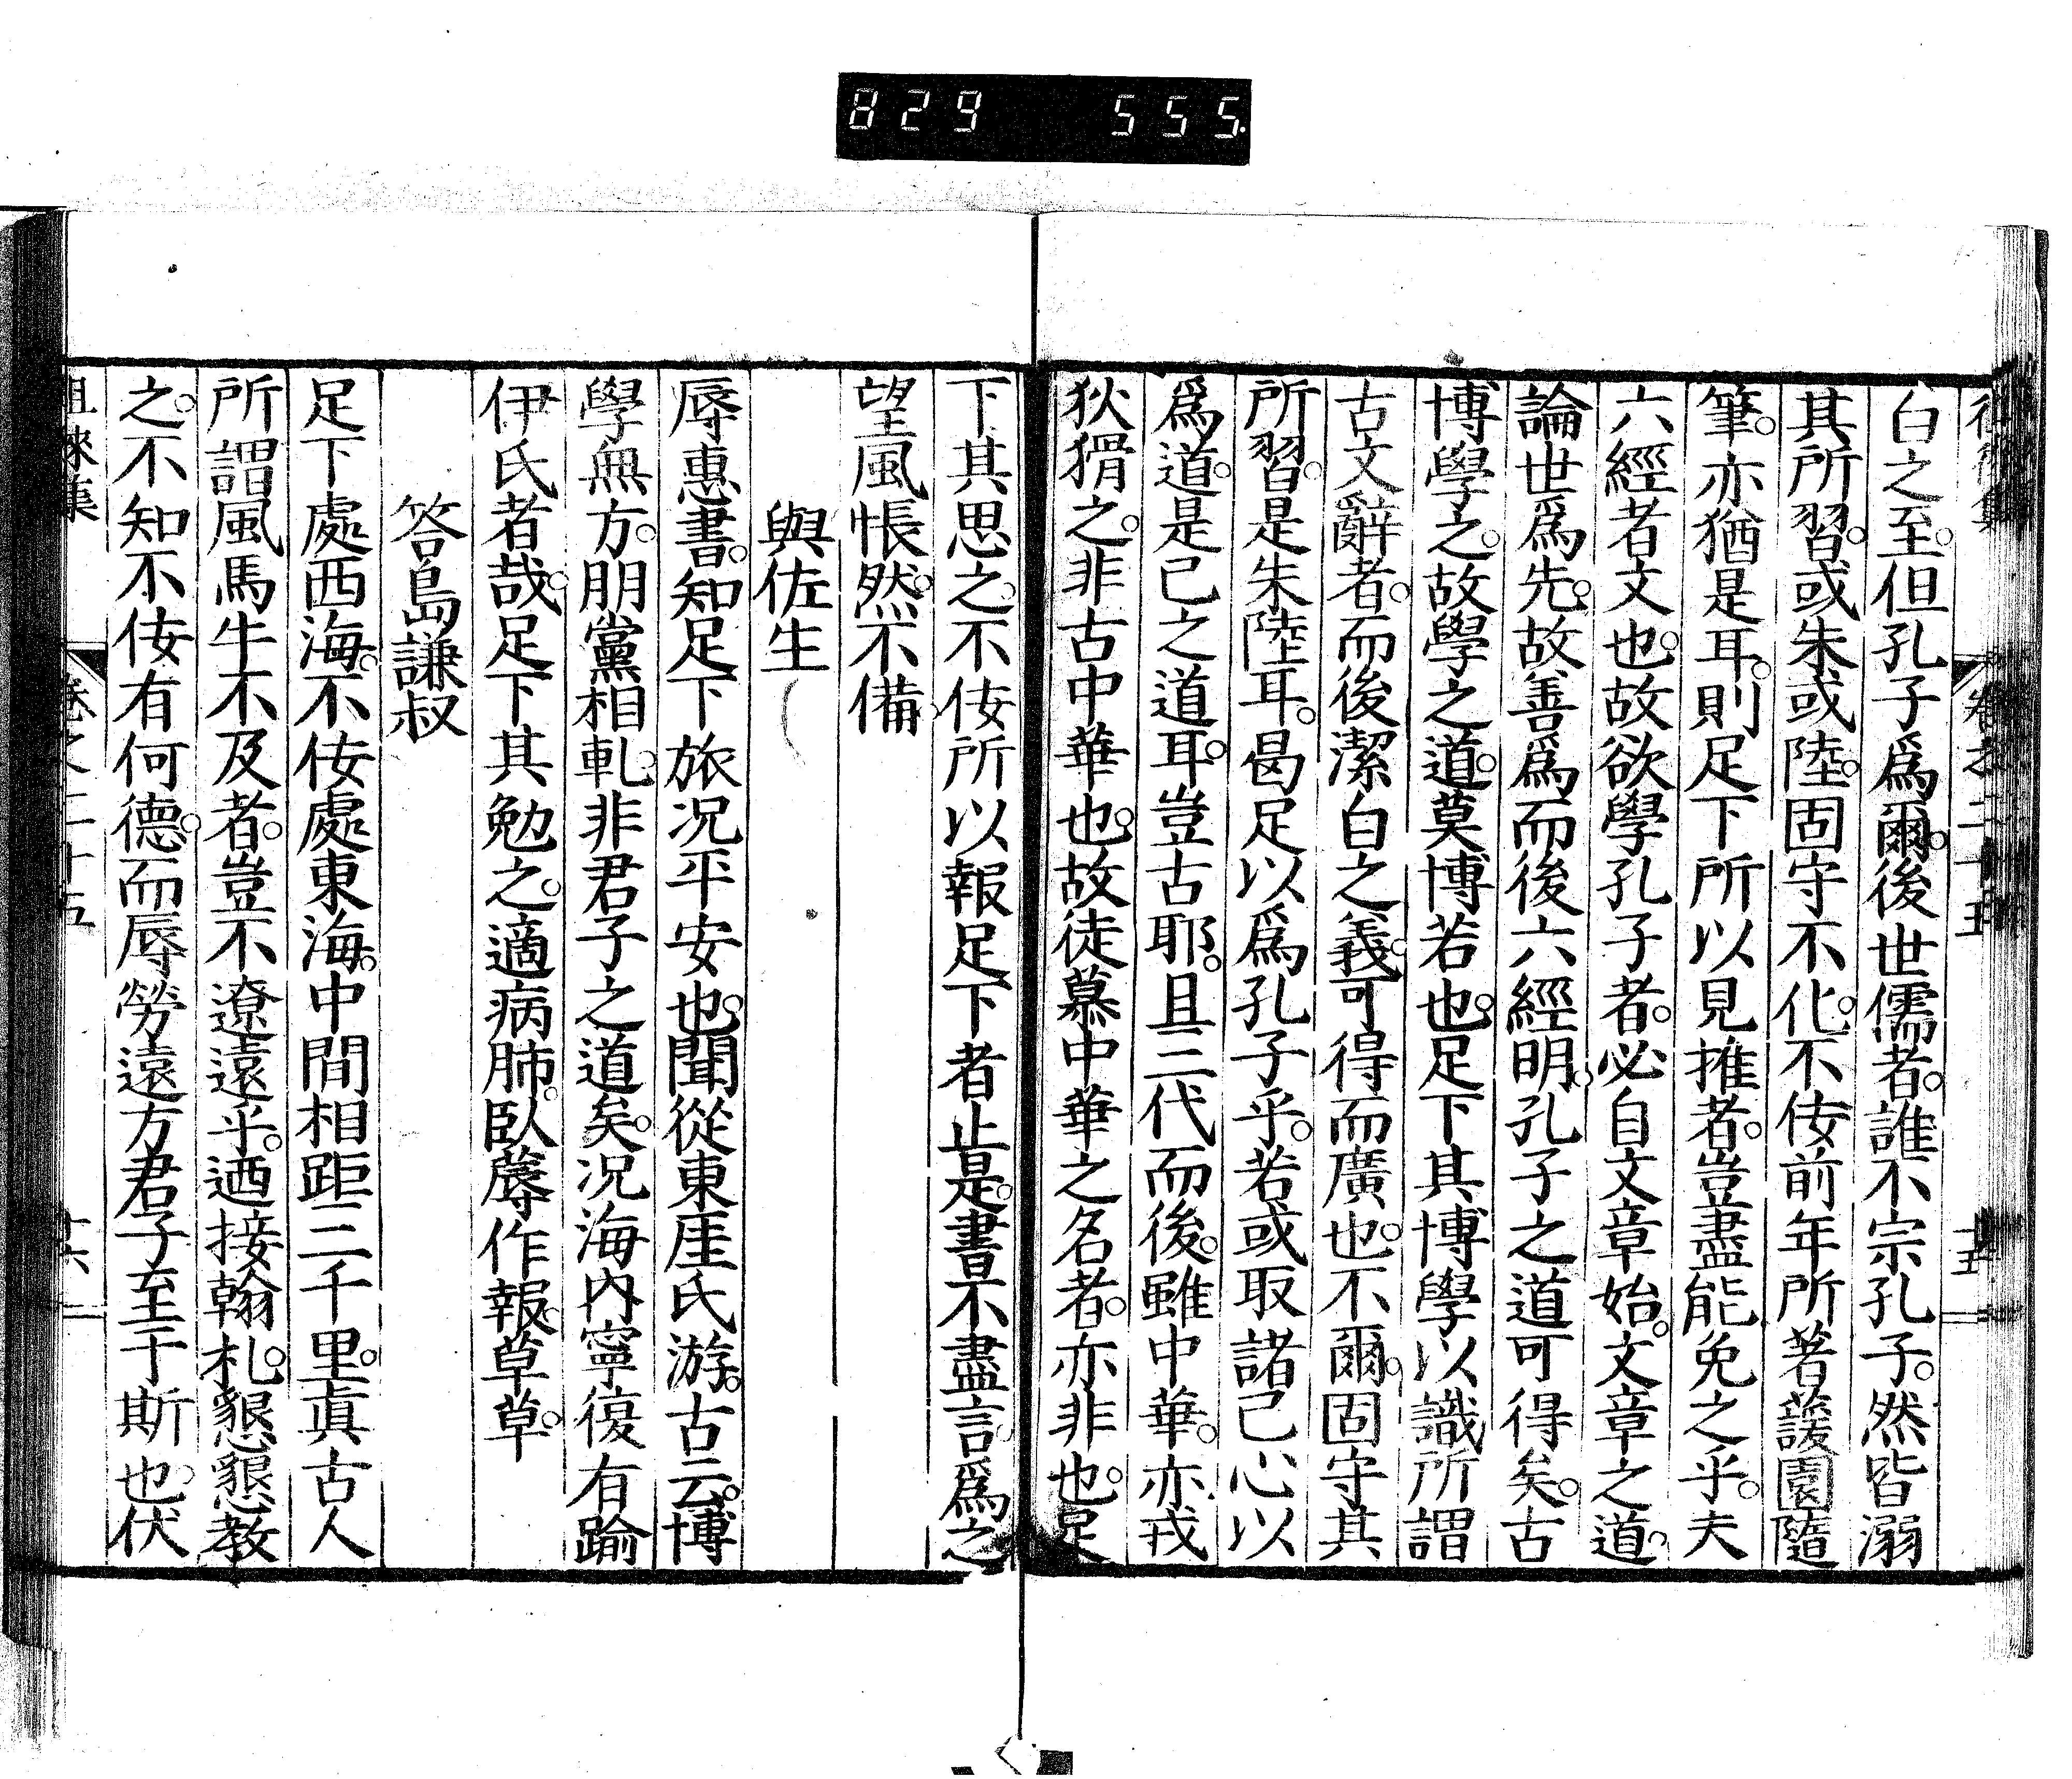 829 555
白之至。但孔子爲爾。後世儒者。誰不宗孔子。然皆溺
其所習。或朱或陸。固守不化。不佞前年所著蘐園隨
筆。亦猶是耳。則足下所以見推者。豈盡能免之乎。夫
六經者文也。故欲學孔子者。必自文章始。文章之道。
論世爲先。故善爲而後六經明。孔子之道可得矣。古
博學之。故學之道。莫博若也。足下其博學以識所謂
古文辭者。而後潔白之義。可得而廣也。不爾。固守其
所習。是朱陸耳。曷足以爲孔子乎。若或取諸己心以
爲道。是己之道耳。豈古耶。且三代而後。雖中華。亦戎
狄猾之。非古中華也。故徒慕中華之名者。亦非也。足
下其思之。不佞所以報足下者止是。書不盡言。爲之
望風悵然。不備
與佐生
辱惠書。知足下旅況平安也。聞從東厓氏游。古云。博
學無方。朋黨相軋。非君子之道矣。況海內寧復有踰
伊氏者哉。足下其勉之。適病肺。臥蓐作報。草草。
答島謙叔
足下處西海。不佞處東海。中間相距三千里。眞古人
所謂風馬牛不及者。豈不遼遠乎。迺接翰札。懇懇教
之。不知不佞有何德。而辱勞遠方君子至于斯也。伏
徂徠集 卷之二十五 十六